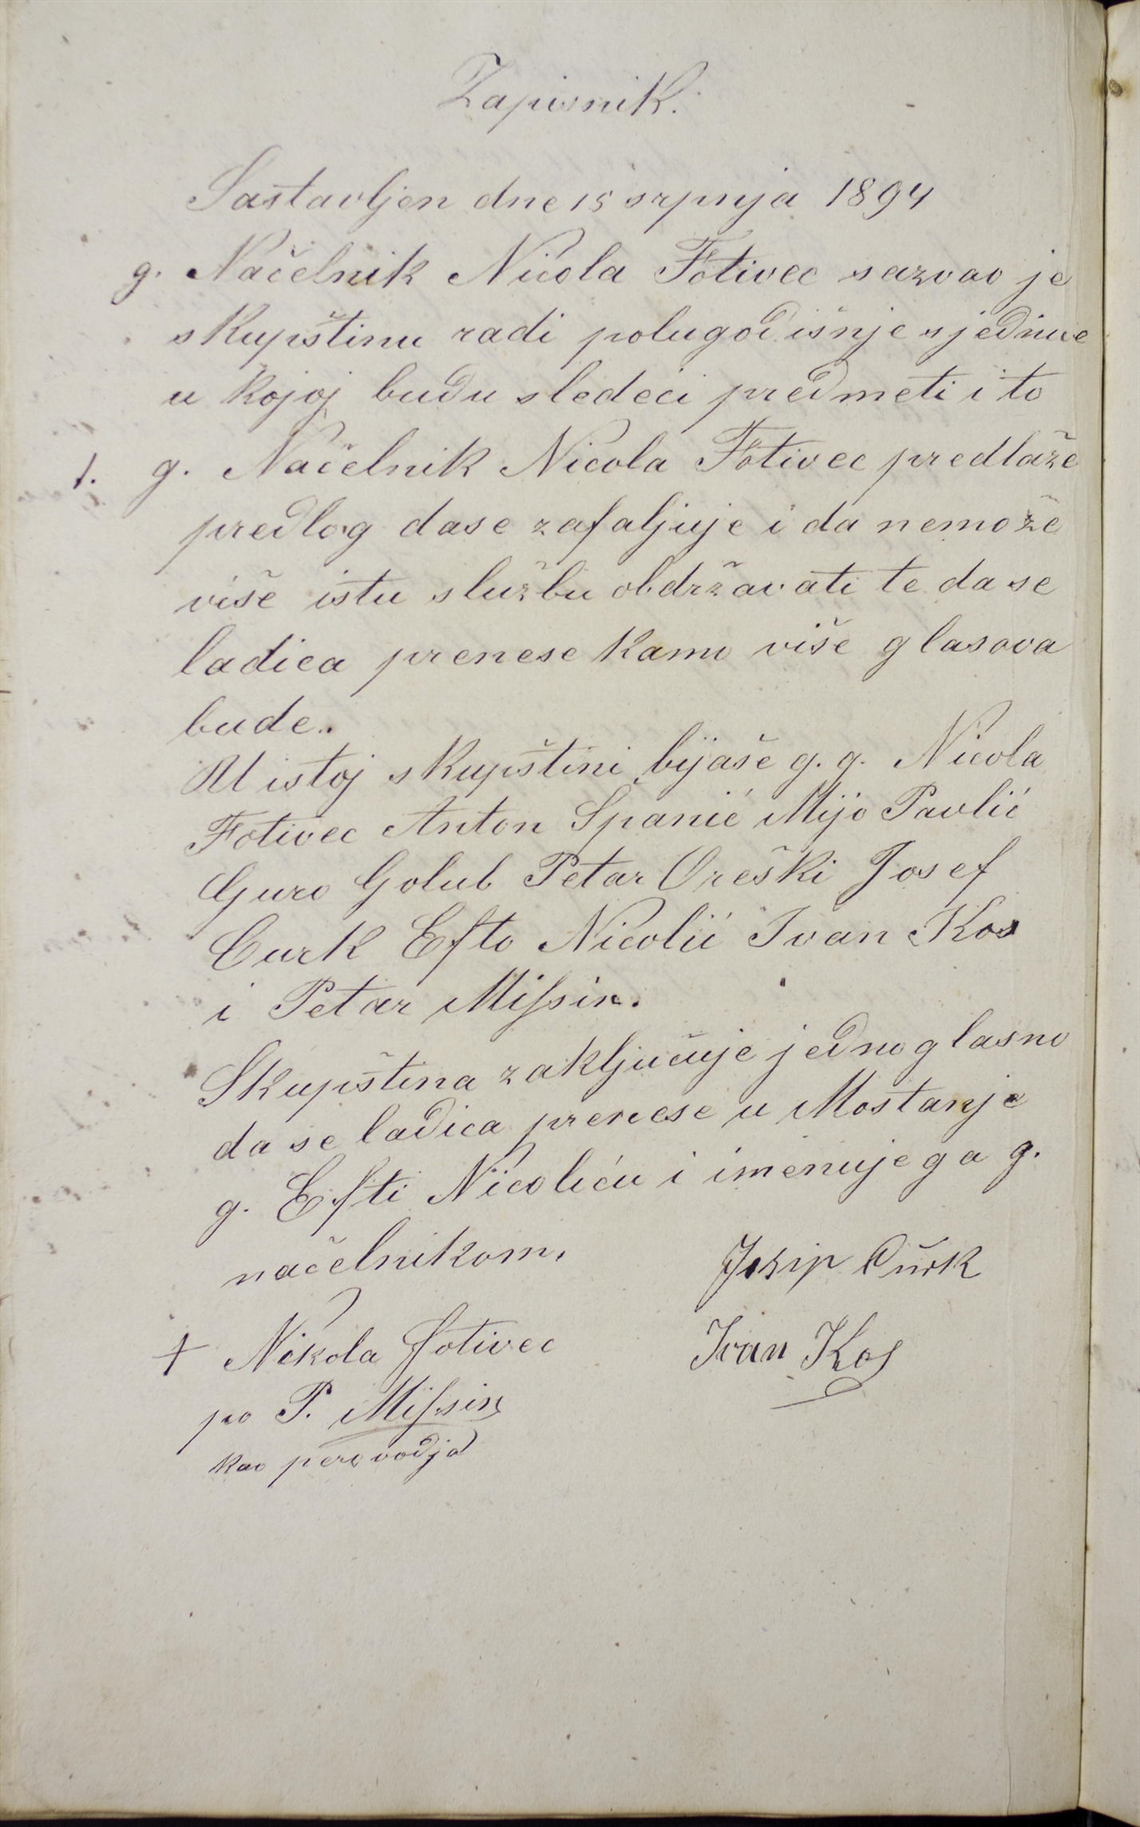 Zapisnik.
Sastavljen dne 15 srpnja 1894
g. Načelnik Nicola Fotivec sazvao je
skupštinu radi polugodišnje sjednice
u kojoj budu sledeći predmeti i to
1. g. Načelnik Nicola Fotivec predlaže
predlog dase zafaljuje i da nemože
više istu službu obdržavati te da se
ladica prenese kamo više glasova
bude.
U istoj skupštini bijaše g. g. Nicola
Fotivec Anton Španić Mijo Pavlić
Guro Golub Petar Oreški Josef
Curk Efto Nicolić Ivan Kos
i Petar Miſsin.
Skupština zaključuje jednoglasno
da se ladica prenese u Mostanje
g. Efti Nicoliću i imenuje ga g.
načelnikom.
Josip Cŭrk
+ Nikola Fotivec
Ivan Kos
po P. Miſsin
kao perovodja